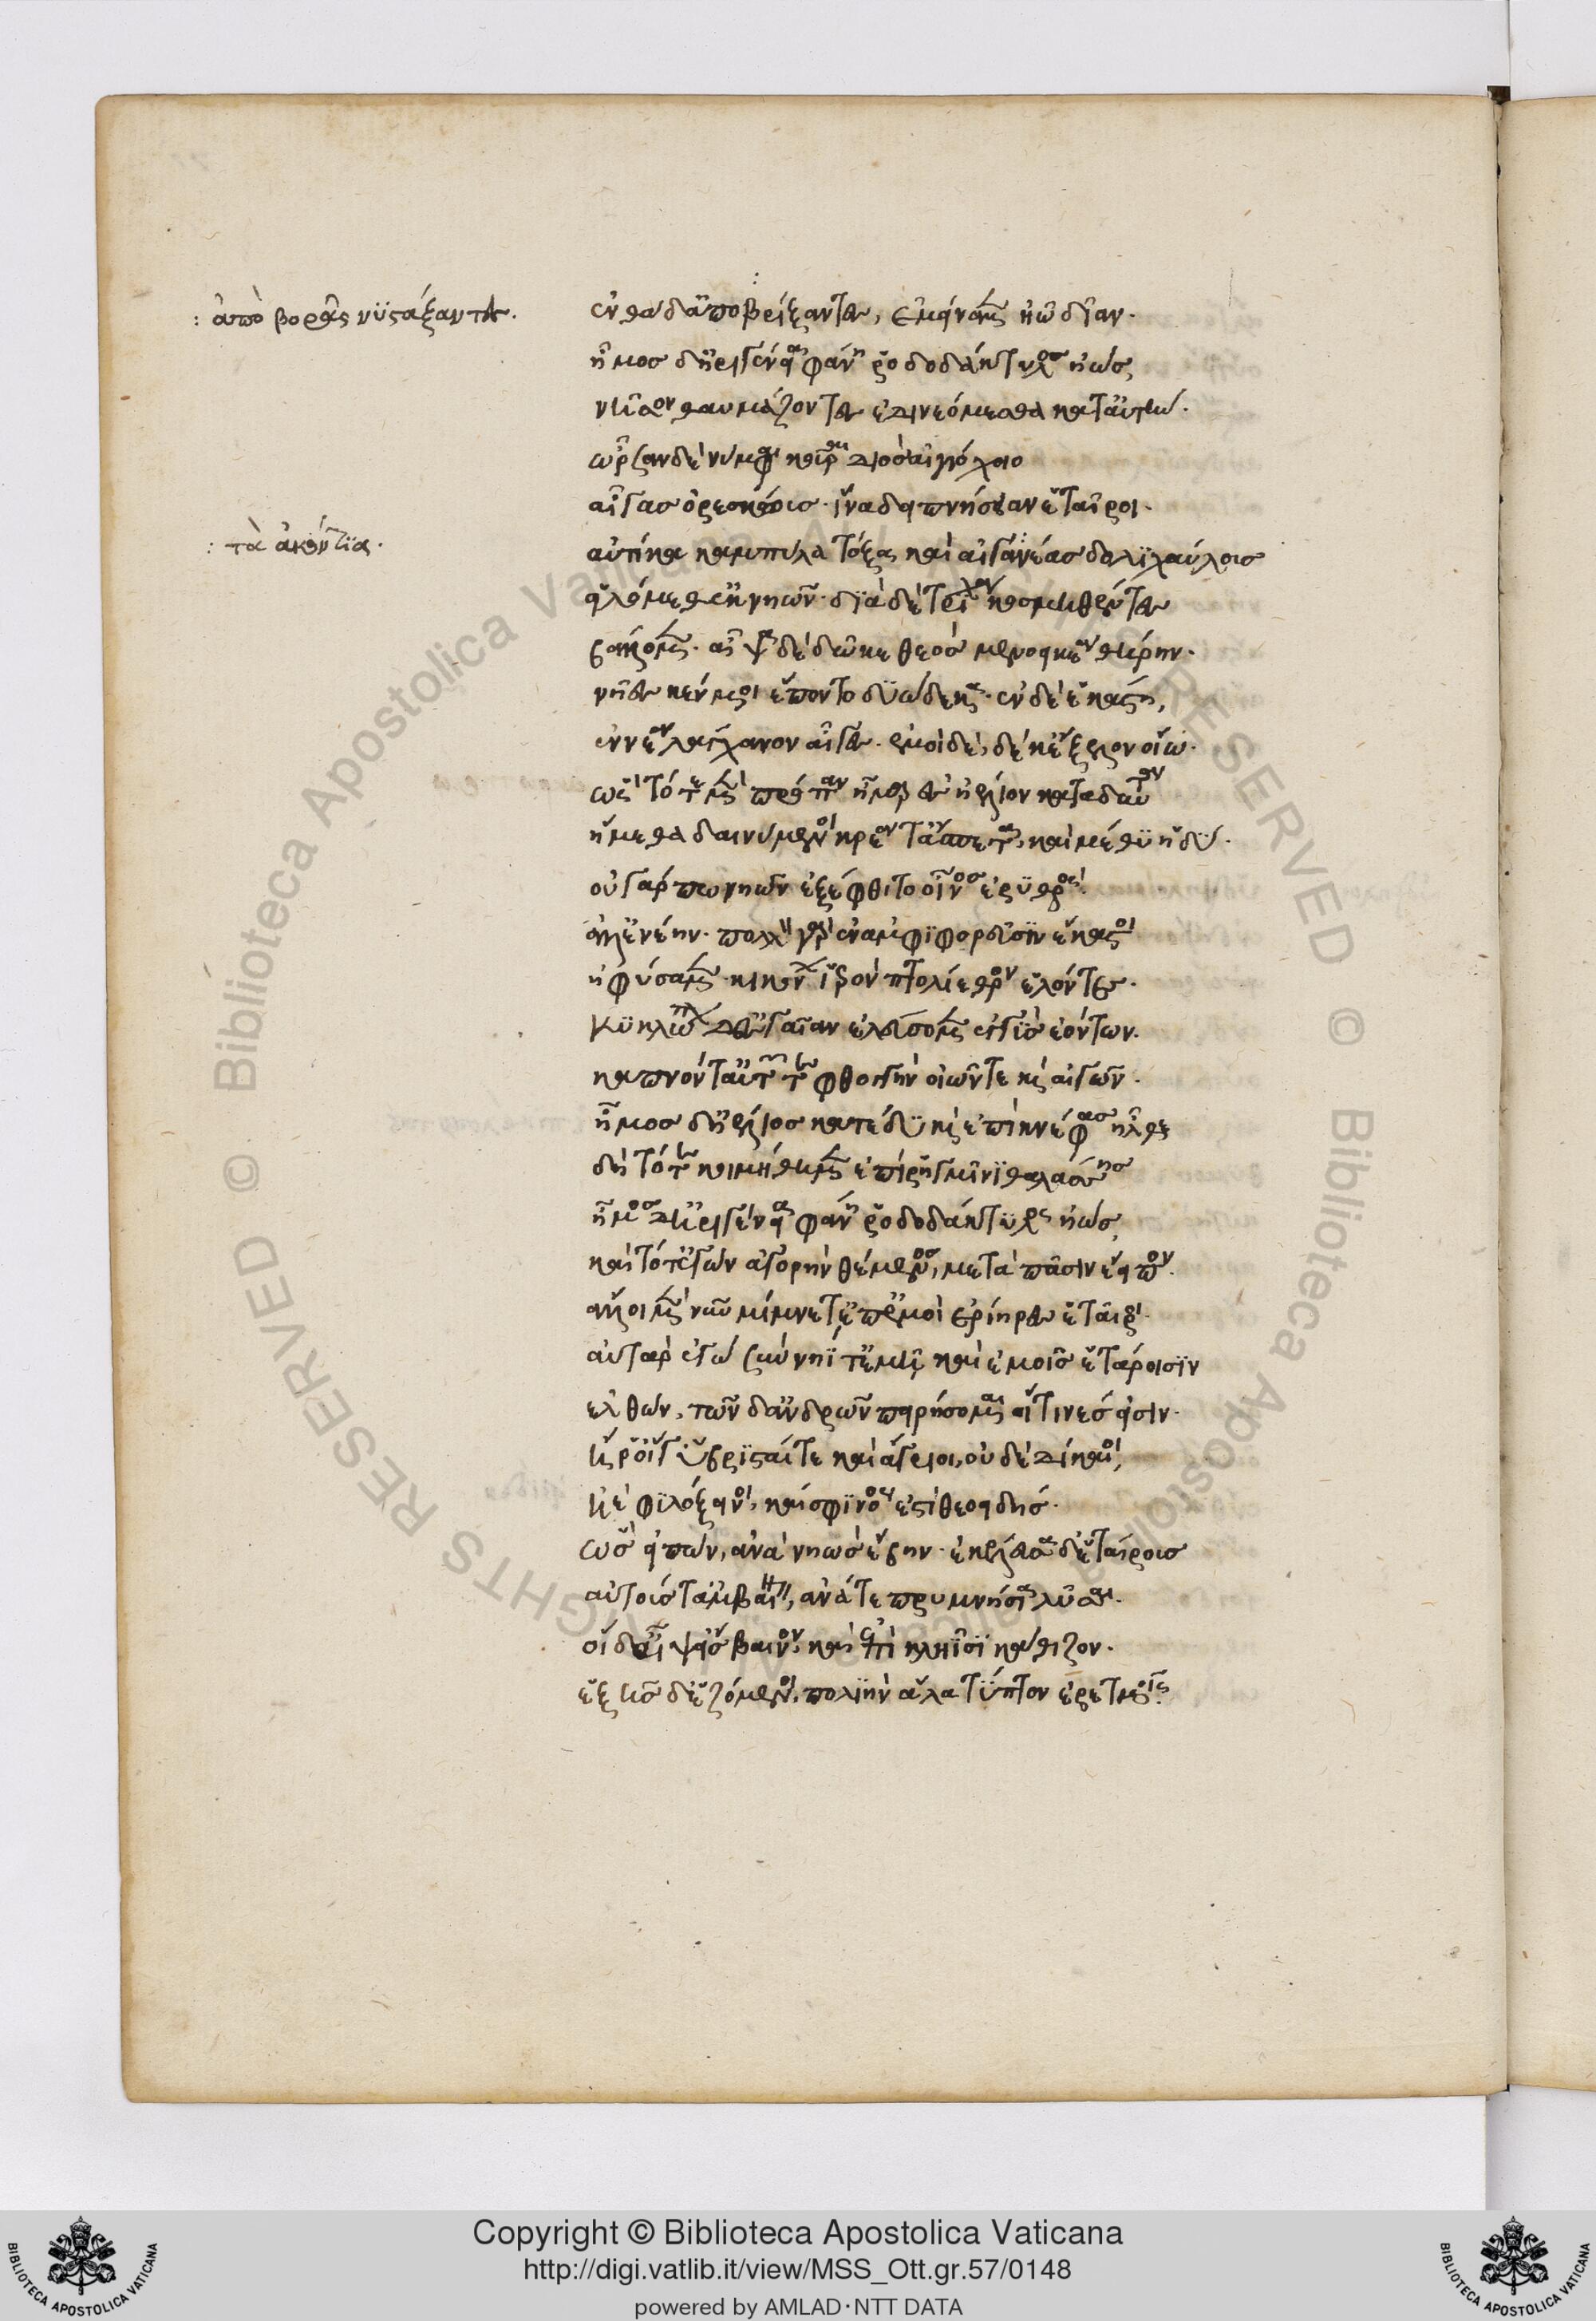 : ἀπὸ βορᾶς νϋστάξαντες.
ἔνθα δ᾽ ἀποβρίξαντες, ἐμείναμεν ἠῶ δῖαν.
ἦμος δ᾽ ἠριγένεια φάνη ῥοδοδάκτυλος ἠώς,
νῆσον θαυμάζοντες ἐδινεόμεσθα κατ᾽ αὐτήν.
ὦρσαν δὲ νύμφαι κοῦραι διὸς αἰγιόχοιο
αἶγας ὀρεσκῴους· ἵνα δειπνήσειαν ἑταῖροι.
: τὰ ἀκόντϊα.
αὐτίκα καμπύλα τόξα καὶ αἰγανέας δολϊχαύλους
εἱλόμεθ᾽ ἐκ νηῶν· δϊὰ δὲ τρίχα κοσμηθέντες
βάλλομεν· αἶψα δὲ δῶκε θεὸς μενοεικέα θήρην.
νῆες μέν μοι ἕποντο δϋώδεκα· ἐν δὲ ἑκάστῃ,
ἐννέα λάγχανον αἶγες· ἐμοὶ δὲ, δέκ᾽ ἔξελον οἴῳ.
ὣς τότε μὲν πρόπαν ἦμαρ ἐς ἠέλιον καταδύντα
ἥμεθα δαινύμενοι κρέα τ᾽ ἄσπετα, καὶ μέθϋ ἡδύ.
οὐ γάρ πω νηῶν ἐξέφθιτο οἶνος ἐρϋθρός.
ἀλλ᾽ ἐνέην· πολλὸν γὰρ ἐν ἀμφϊφορεῦσϊν ἕκαστοι
ἠφύσαμεν· κικόνων ἱερὸν πτολίεθρον ἑλόντες.
κϋκλώπων δ᾽ ἐς γαῖαν ἐλεύσσομεν ἐγγὺς ἐόντων.
καπνόν τ᾽ αὐτῶν τε φθογγὴν ὀΐων τε καὶ αἰγῶν.
ἦμος δ᾽ ἠέλιος κατέδϋ καὶ ἐπὶ κνέφας ἦλθε
δὴ τότε κοιμήθημεν ἐπὶ ῥηγμῖνϊ θαλάσσης
ἦμος δ᾽ ἠριγένεια φάνη ῥοδοδάκτϋλος ἠώς,
καὶ τότ᾽ ἐγὼν ἀγορὴν θέμενος, μετὰ πᾶσιν ἔειπον.
ἄλλοι μὲν νῦν μίμνετ᾽ ἐμοὶ ἐρίηρες ἑταῖροι.
αὐτὰρ ἐγὼ σὺν νηΐ τ᾽ ἐμῇ καὶ ἐμοῖς ἑτάροισϊν
ἐλθὼν, τῶνδ᾽ ἀνδρῶν πειρήσομαι οἵτινές εἰσιν.
ἤ ῥ᾽ οἵγ᾽ ὑβρϊσταί τε καὶ ἄγριοι, οὐδὲ δίκαιοι,
ἦε φϊλόξεινοι, καί σφϊ νόος ἐστὶ θεουδής.
ὣς εἰπὼν, ἀνὰ νηὸς ἔβην· ἐκέλευσα δ᾽ ἑταίρους
αὐτούς τ᾽ ἀμβαίνειν, ἀνά τε πρυμνήσια λῦσαι.
οἱ δ᾽ αἶψ᾽ εἴσβαινον, καὶ ἐπὶ κληῗσϊ κάθιζον.
ἑξῆς δ᾽ ἑζόμενοι, πολϊὴν ἅλα τύπτον ἐρετμοῖς.
Copyright © Biblioteca Apostolica Vaticana
http://digi.vatlib.it/view/MSS_Ott.gr.57/0148
powered by AMLAD·NTT DATA